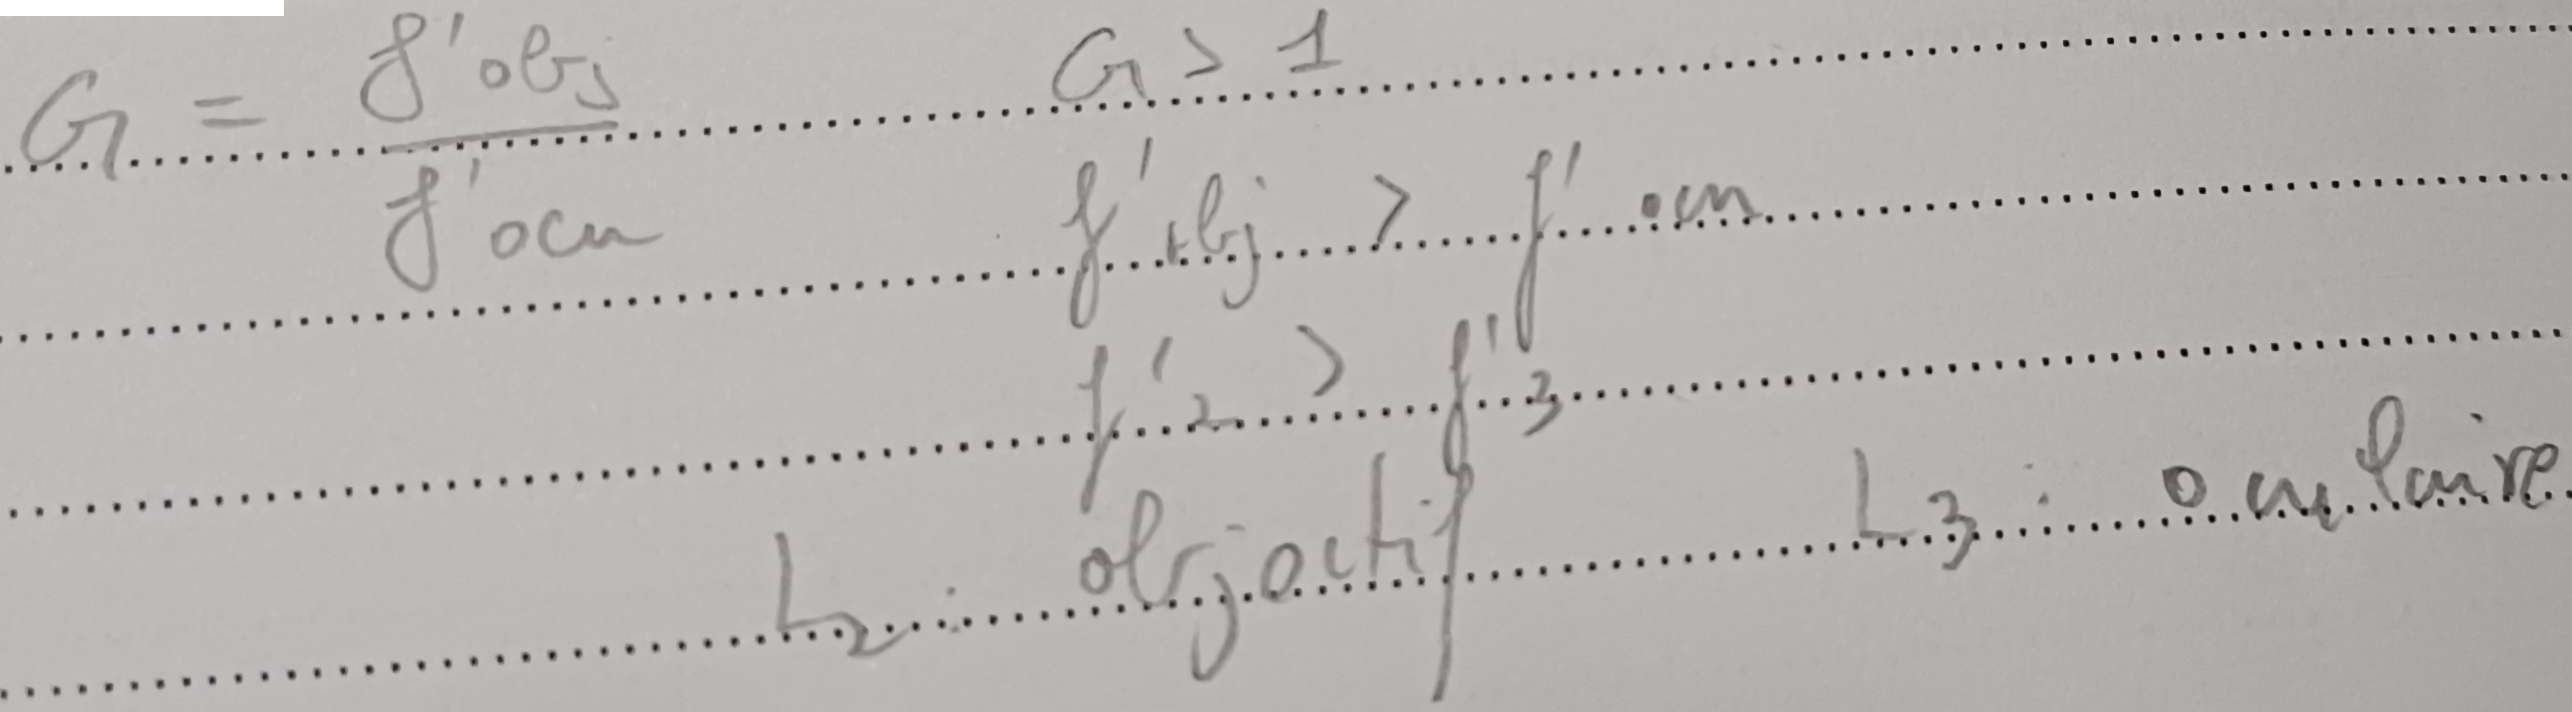 G = f'obj / f'ocu
G > 1
f'obj > f'ocu
f'2 > f'3
L2 : objectif L3 : oculaire